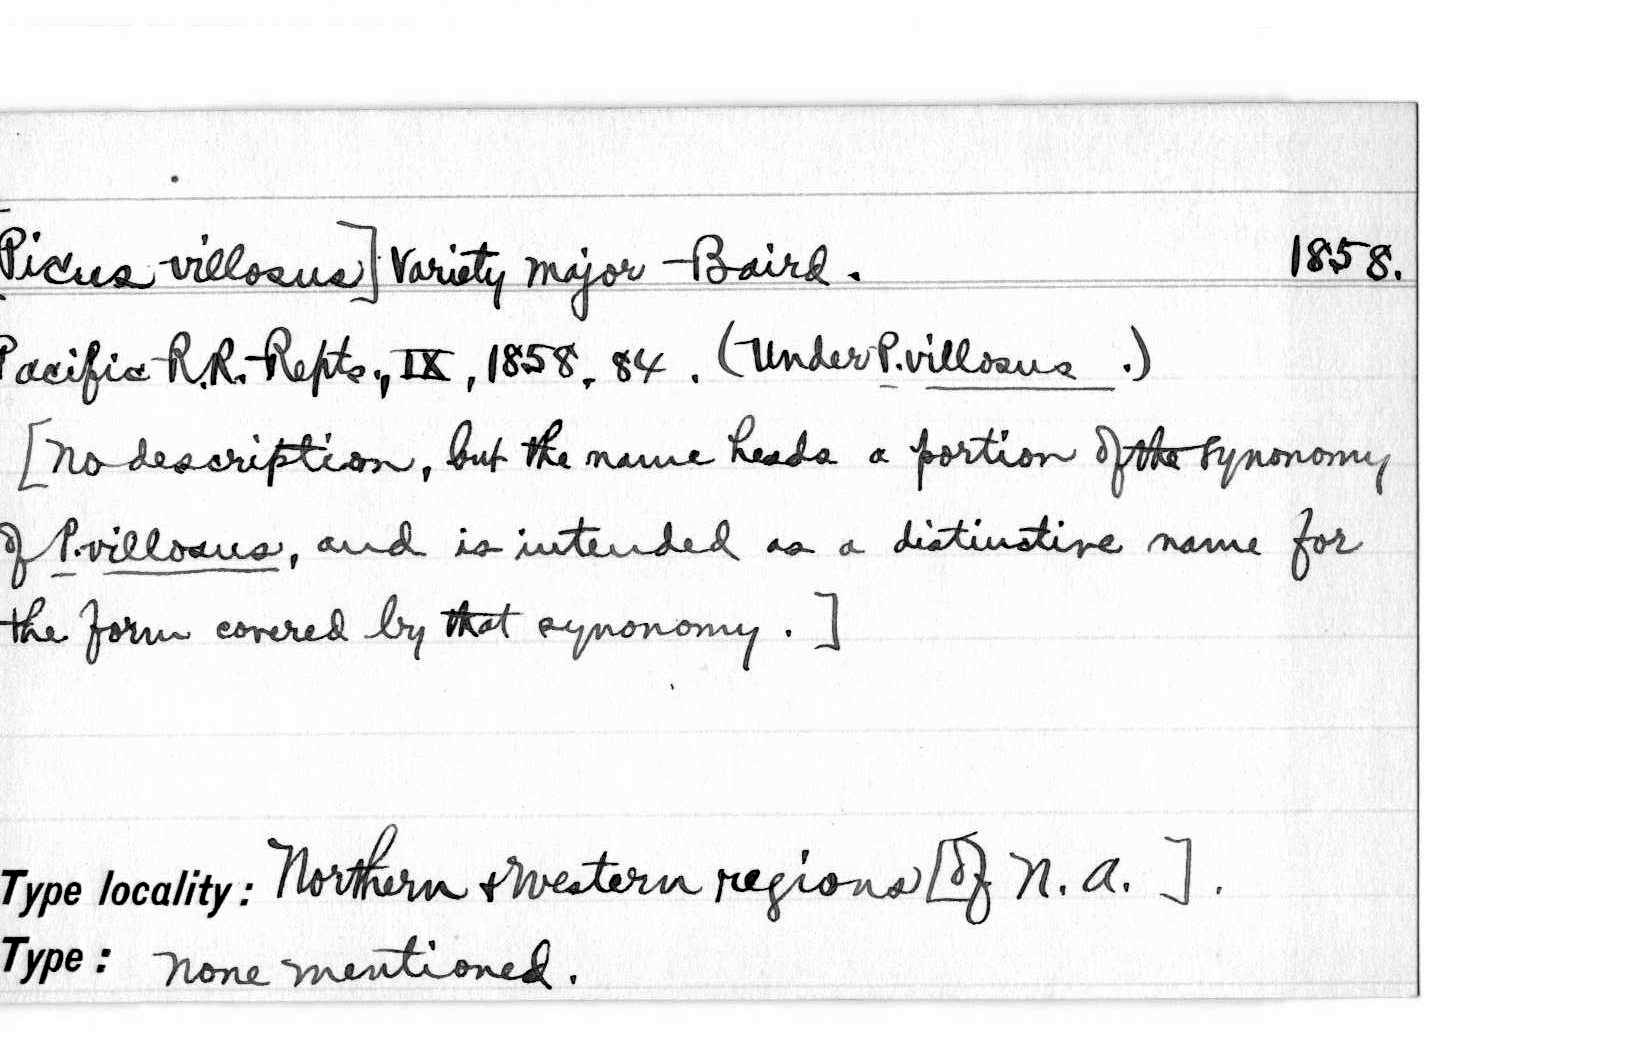 [Picus villosus] Variety major Baird. 1858.
Pacific R.R. Repts., IX, 1858, 84. (Under P. villosus.)
[No description, but the name heads a portion of the synonomy
of P. villosus, and is intended as a distinctive name for
the form covered by that synonomy.]
Type locality: Northern & Western regions [of N. A.].
Type: None mentioned.